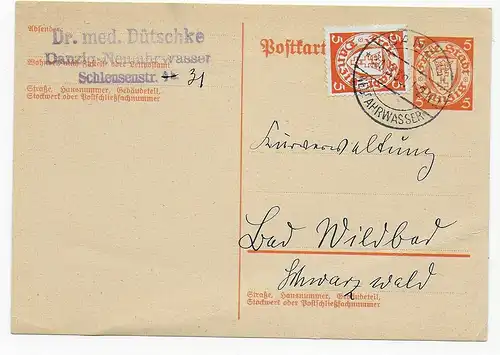 Absender:
Dr. med. Dütschke
Danzig-Neufahrwasser
Wohnort, auch Zustell- oder Leitpostamt
Schleusenstr. 31
Straße, Hausnummer, Gebäudeteil,
Stockwerk oder Postschließfachnummer
Postkarte
5 5
5 5
5 5
AHRWASSER
Kurverwaltung
Bad Wildbad
Schwarzwald
Straße, Hausnummer, Gebäudeteil,
Stockwerk oder Postschließfachnummer